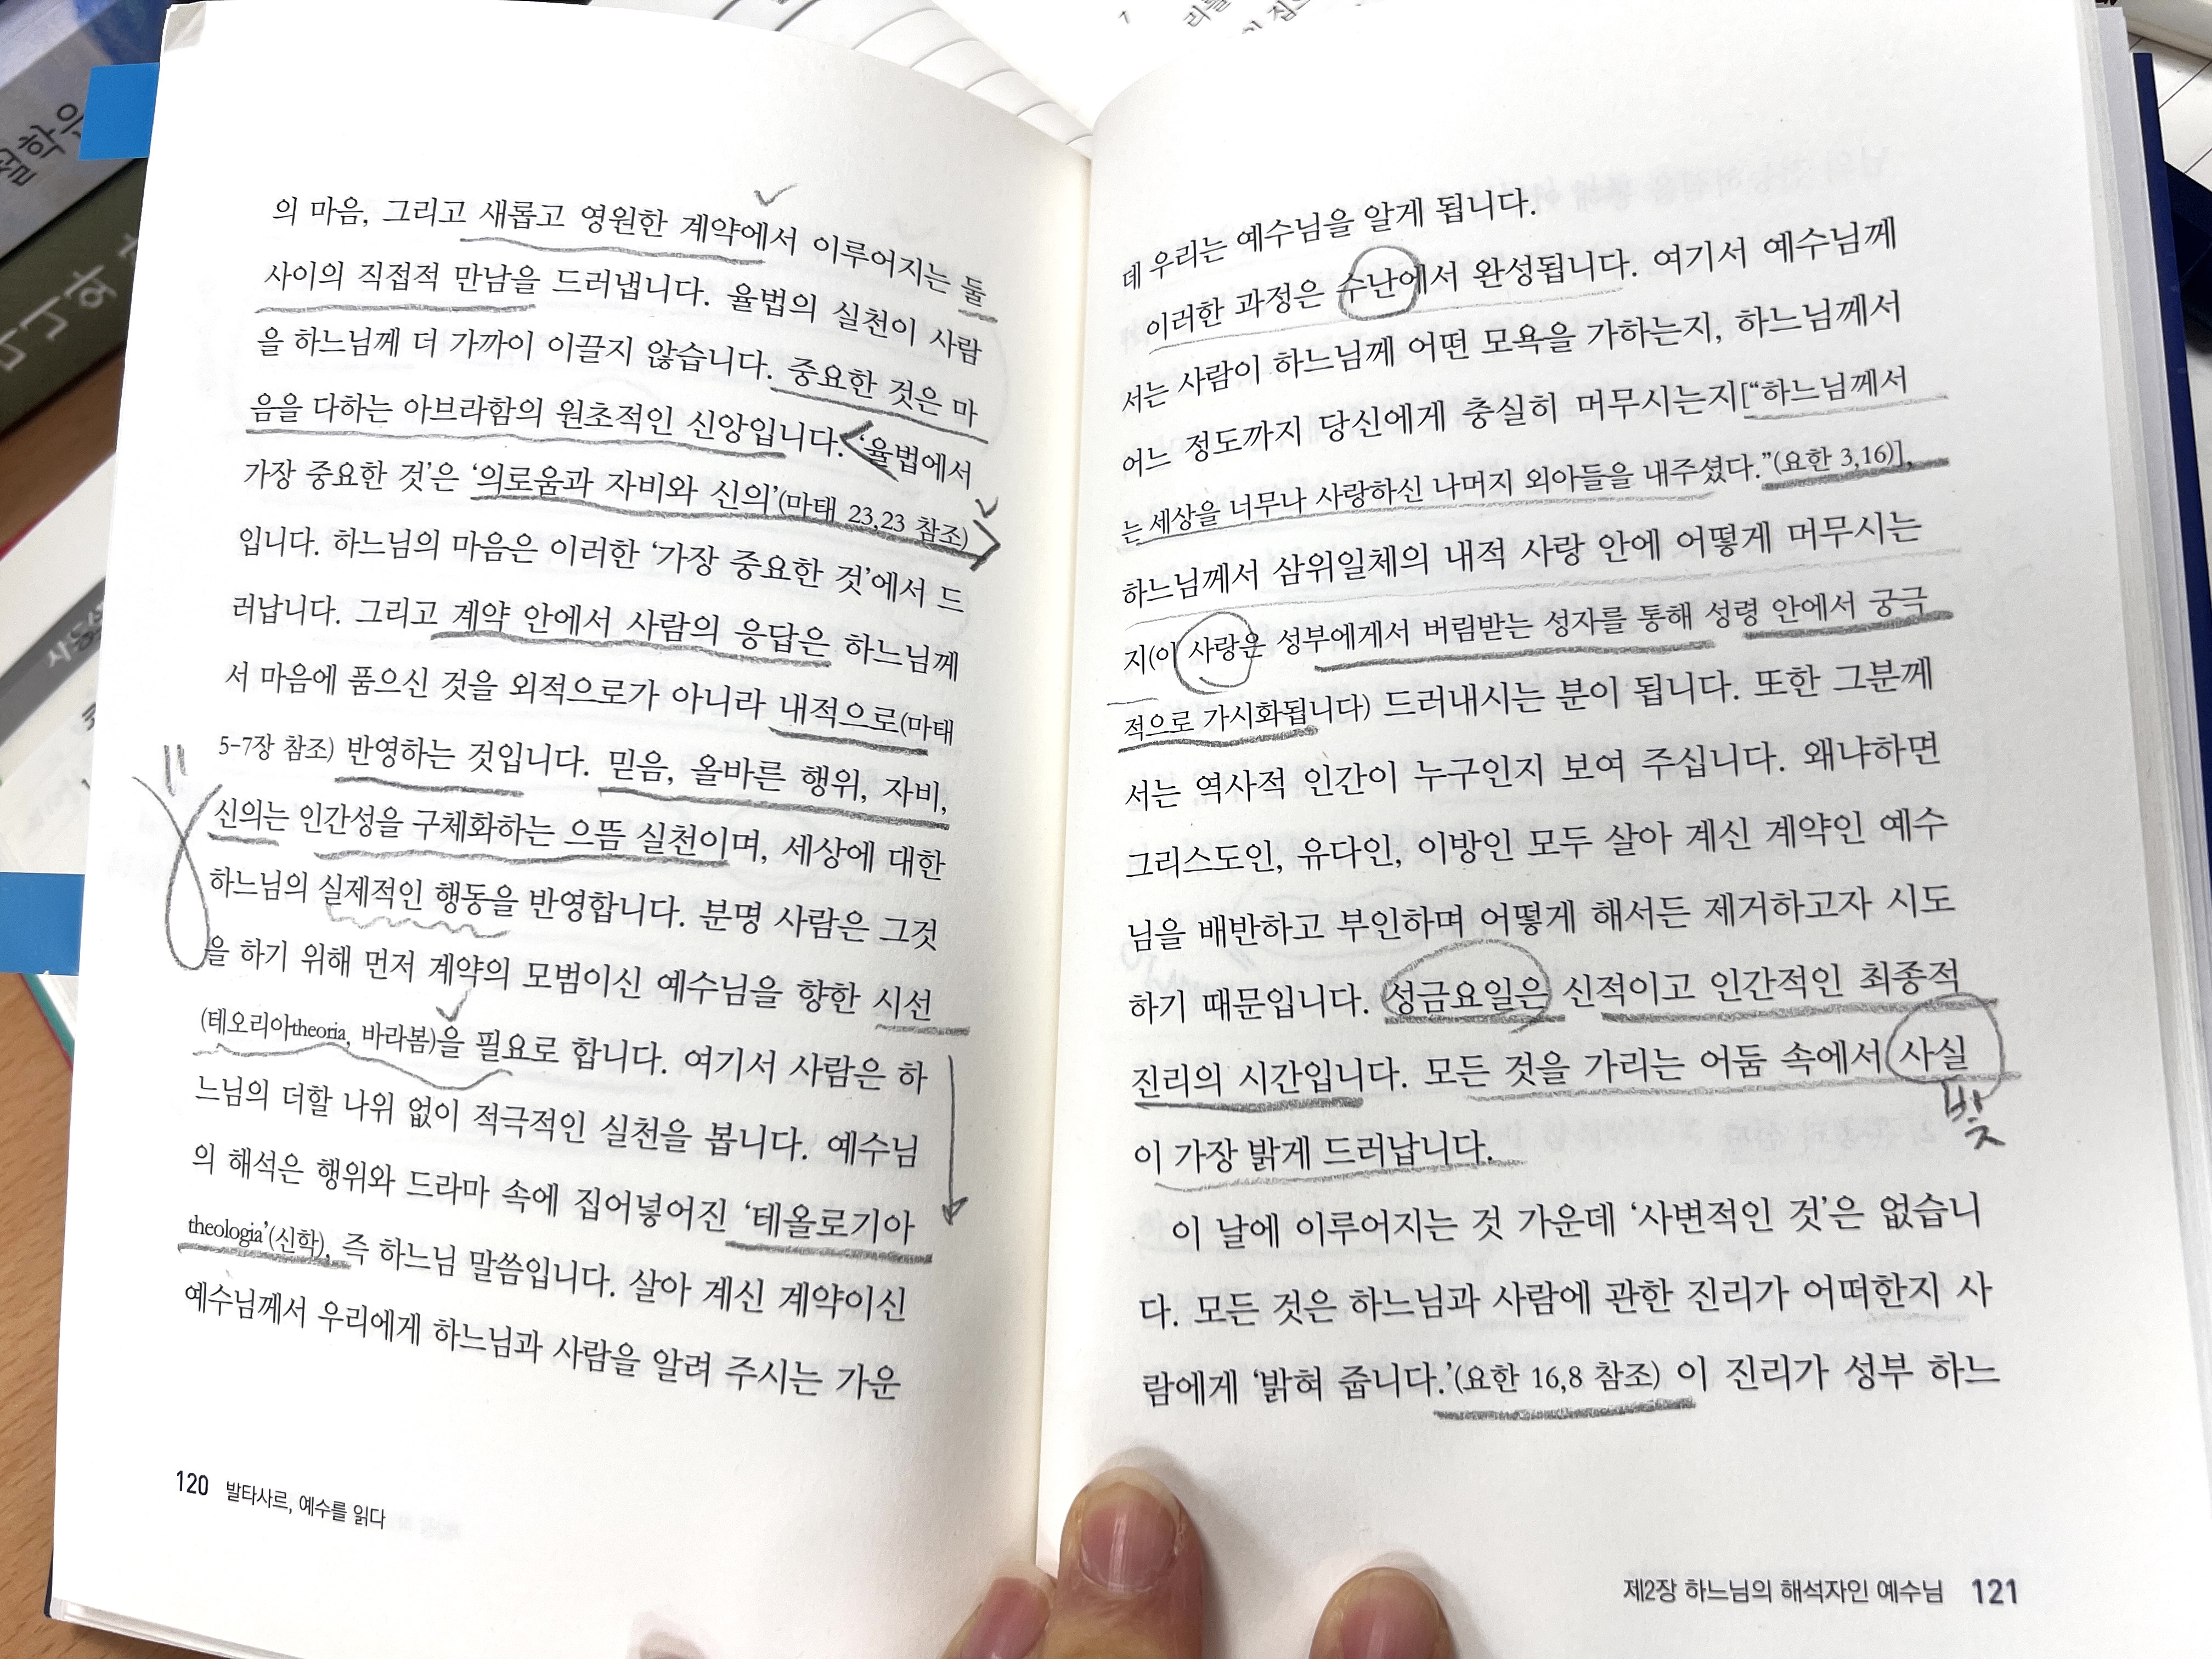 의 마음, 그리고 새롭고 영원한 계약에서 이루어지는 둘
사이의 직접적 만남을 드러냅니다. 율법의 실천이 사람
을 하느님께 더 가까이 이끌지 않습니다. 중요한 것은 마
음을 다하는 아브라함의 원초적인 신앙입니다. ‘율법에서
가장 중요한 것’은 ‘의로움과 자비와 신의’(마태 23,23 참조)
입니다. 하느님의 마음은 이러한 ‘가장 중요한 것’에서 드
러납니다. 그리고 계약 안에서 사람의 응답은 하느님께
서 마음에 품으신 것을 외적으로가 아니라 내적으로(마태
5-7장 참조) 반영하는 것입니다. 믿음, 올바른 행위, 자비,
신의는 인간성을 구체화하는 으뜸 실천이며, 세상에 대한
하느님의 실제적인 행동을 반영합니다. 분명 사람은 그것
을 하기 위해 먼저 계약의 모범이신 예수님을 향한 시선
(테오리아theoria, 바라봄)을 필요로 합니다. 여기서 사람은 하
느님의 더할 나위 없이 적극적인 실천을 봅니다. 예수님
의 해석은 행위와 드라마 속에 집어넣어진 ‘테올로기아
theologia’(신학), 즉 하느님 말씀입니다. 살아 계신 계약이신
예수님께서 우리에게 하느님과 사람을 알려 주시는 가운
120 발타사르, 예수를 읽다
데 우리는 예수님을 알게 됩니다.
이러한 과정은 수난에서 완성됩니다. 여기서 예수님께
서는 사람이 하느님께 어떤 모욕을 가하는지, 하느님께서
어느 정도까지 당신에게 충실히 머무시는지[“하느님께서
는 세상을 너무나 사랑하신 나머지 외아들을 내주셨다.”(요한 3,16)],
하느님께서 삼위일체의 내적 사랑 안에 어떻게 머무시는
지(이 사랑은 성부에게서 버림받는 성자를 통해 성령 안에서 궁극
적으로 가시화됩니다) 드러내시는 분이 됩니다. 또한 그분께
서는 역사적 인간이 누구인지 보여 주십니다. 왜냐하면
그리스도인, 유다인, 이방인 모두 살아 계신 계약인 예수
님을 배반하고 부인하며 어떻게 해서든 제거하고자 시도
하기 때문입니다. 성금요일은 신적이고 인간적인 최종적
진리의 시간입니다. 모든 것을 가리는 어둠 속에서 사실
빛
이 가장 밝게 드러납니다.
이 날에 이루어지는 것 가운데 ‘사변적인 것’은 없습니
다. 모든 것은 하느님과 사람에 관한 진리가 어떠한지 사
람에게 ‘밝혀 줍니다.’(요한 16,8 참조) 이 진리가 성부 하느
제2장 하느님의 해석자인 예수님 121